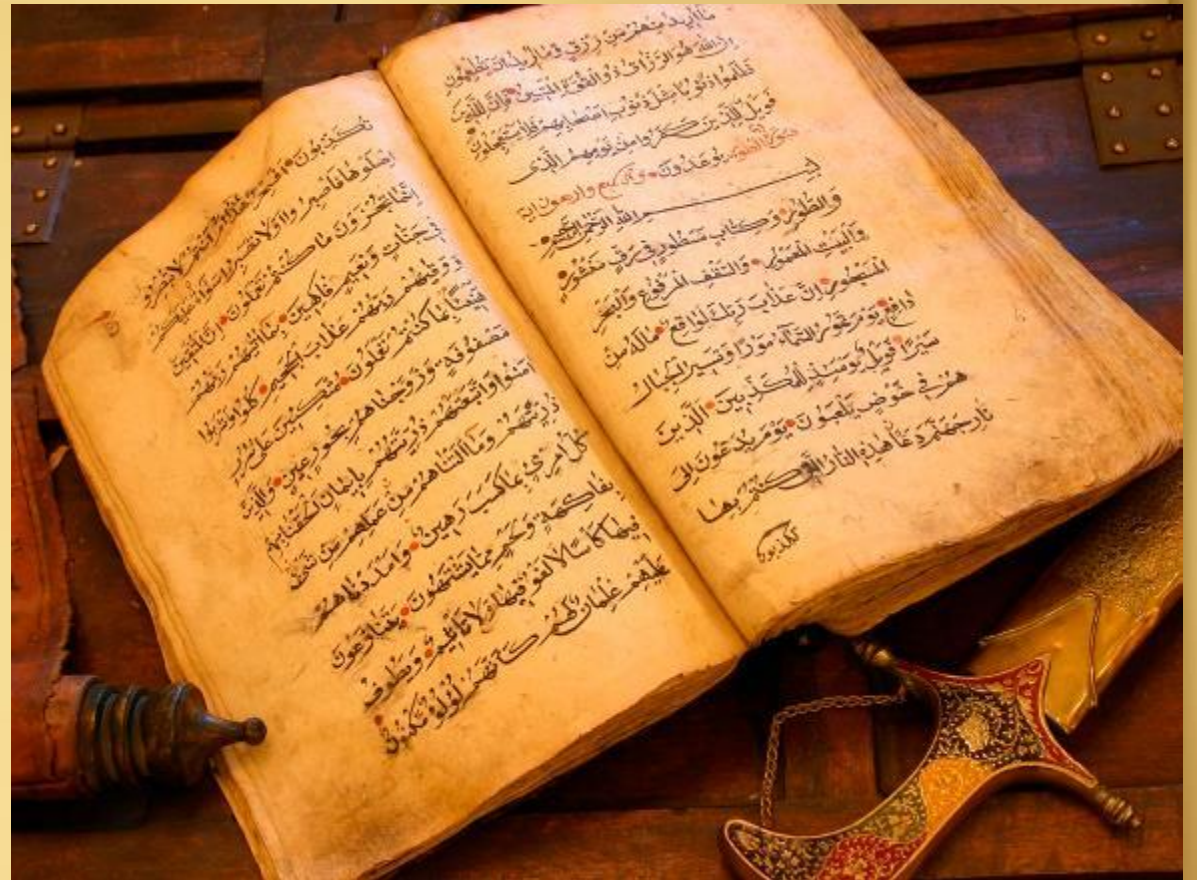 مَا اُرِيدُ مِنْهُمْ مِنْ رِزْقٍ وَمَا اُرِيدُ اَنْ يُطْعِمُونِ
اِنَّ اللهَ هُوَ الرَّزَّاقُ ذُو الْقُوَّةِ الْمَتِينُ فَاِنَّ لِلَّذِينَ
ظَلَمُوا ذَنُوبًا مِثْلَ ذَنُوبِ اَصْحَابِهِمْ فَلَا يَسْتَعْجِلُونِ
فَوَيْلٌ لِلَّذِينَ كَفَرُوا مِنْ يَوْمِهِمُ الَّذِى
يُوعَدُونَ واربعون اية
بسم اللهِ الرَّحْمٰنِ الرَّحِيمِ
وَالطُّورِ وَكِتَابٍ مَسْطُورٍ فِى رَقٍّ مَنْشُورٍ
وَالْبَيْتِ الْمَعْمُورِ وَالسَّقْفِ الْمَرْفُوعِ وَالْبَحْرِ
الْمَسْجُورِ اِنَّ عَذَابَ رَبِّكَ لَوَاقِعٌ مَالَهُ مِنْ
دَافِعٍ يَوْمَ تَمُورُ السَّمَاءُ مَوْرًا وَتَسِيرُ الْجِبَالُ
سَيْرًا فَوَيْلٌ يَوْمَئِذٍ لِلْمُكَذِّبِينَ الَّذِينَ
هُمْ فِى خَوْضٍ يَلْعَبُونَ يَوْمَ يُدَعُّونَ اِلَى
نَارِ جَهَنَّمَ دَعًّا هٰذِهِ النَّارُ الَّتِى كُنْتُمْ بِهَا
تكذبون
تُكَذِّبُونَ اَفَسِحْرٌ هٰذَا اَمْ اَنْتُمْ لَا تُبْصِرُونَ
اِصْلَوْهَا فَاصْبِرُوا اَوْ لَا تَصْبِرُوا سَوَاءٌ عَلَيْكُمْ
اِنَّمَا تُجْزَوْنَ مَا كُنْتُمْ تَعْمَلُونَ اِنَّ الْمُتَّقِينَ
فِى جَنَّاتٍ وَنَعِيمٍ فَاكِهِينَ بِمَا اٰتٰيهُمْ رَبُّهُمْ
وَوَقٰيهُمْ رَبُّهُمْ عَذَابَ الْجَحِيمِ كُلُوا وَاشْرَبُوا
هَنِيئًا بِمَا كُنْتُمْ تَعْمَلُونَ مُتَّكِئِينَ عَلٰى سُرُرٍ
مَصْفُوفَةٍ وَزَوَّجْنَاهُمْ بِحُورٍ عِينٍ وَالَّذِينَ
اٰمَنُوا وَاتَّبَعَتْهُمْ ذُرِّيَّتُهُمْ بِاِيمَانٍ اَلْحَقْنَا بِهِمْ
ذُرِّيَّتَهُمْ وَمَا اَلَتْنَاهُمْ مِنْ عَمَلِهِمْ مِنْ شَىْءٍ
كُلُّ امْرِئٍ بِمَا كَسَبَ رَهِينٌ وَاَمْدَدْنَاهُمْ
بِفَاكِهَةٍ وَلَحْمٍ مِمَّا يَشْتَهُونَ يَتَنَازَعُونَ
فِيهَا كَأْسًا لَا لَغْوٌ فِيهَا وَلَا تَأْثِيمٌ وَيَطُوفُ
عَلَيْهِمْ غِلْمَانٌ لَهُمْ كَاَنَّهُمْ لُؤْلُؤٌ مَكْنُونٌ